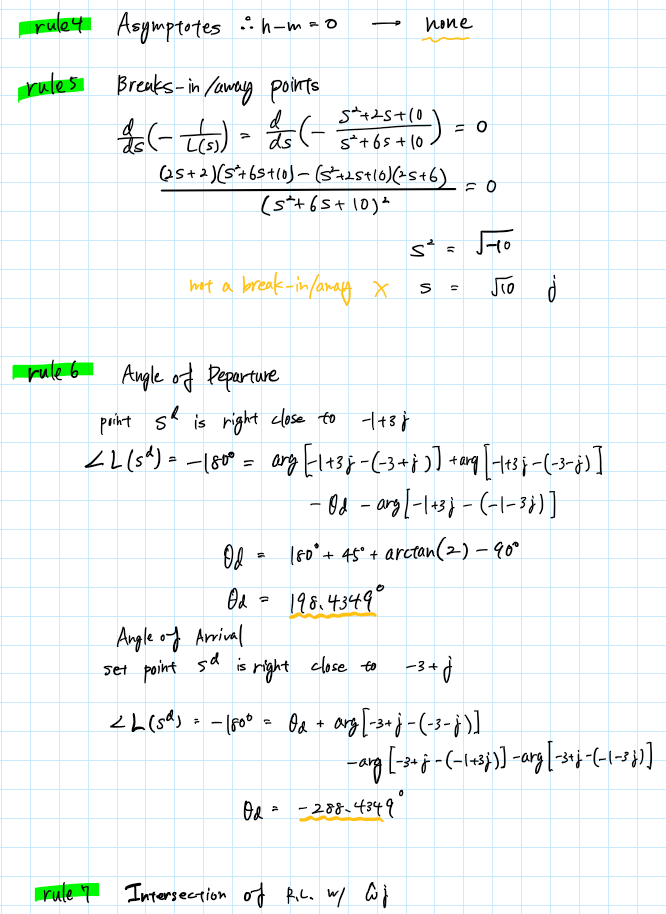 rule4 Asymptotes ∴ n-m=0 → none
rule5 Breaks-in/away points
d/ds(-1/L(s)) = d/ds(-(s²+2s+10)/(s²+6s+10)) = 0
((2s+2)(s²+6s+10)-(s²+2s+10)(2s+6))/(s²+6s+10)² = 0
s² = √-10
not a break-in/away × s = √10 j
rule6 Angle of Departure
point s^d is right close to -1+3j
∠L(s^d) = -180° = arg[-1+3j-(-3+j)] + arg[-1+3j-(-3-j)]
- θd - arg[-1+3j-(-1-3j)]
θd = 180° + 45° + arctan(2) - 90°
θd = 198.4349°
Angle of Arrival
set point s^d is right close to -3+j
∠L(s^d) = -180° = θd + arg[-3+j-(-3-j)]
-arg[-3+j-(-1+3j)] -arg[-3+j-(-1-3j)]
θd = -288.4349°
rule7 Intersection of R.L. w/ ŵj